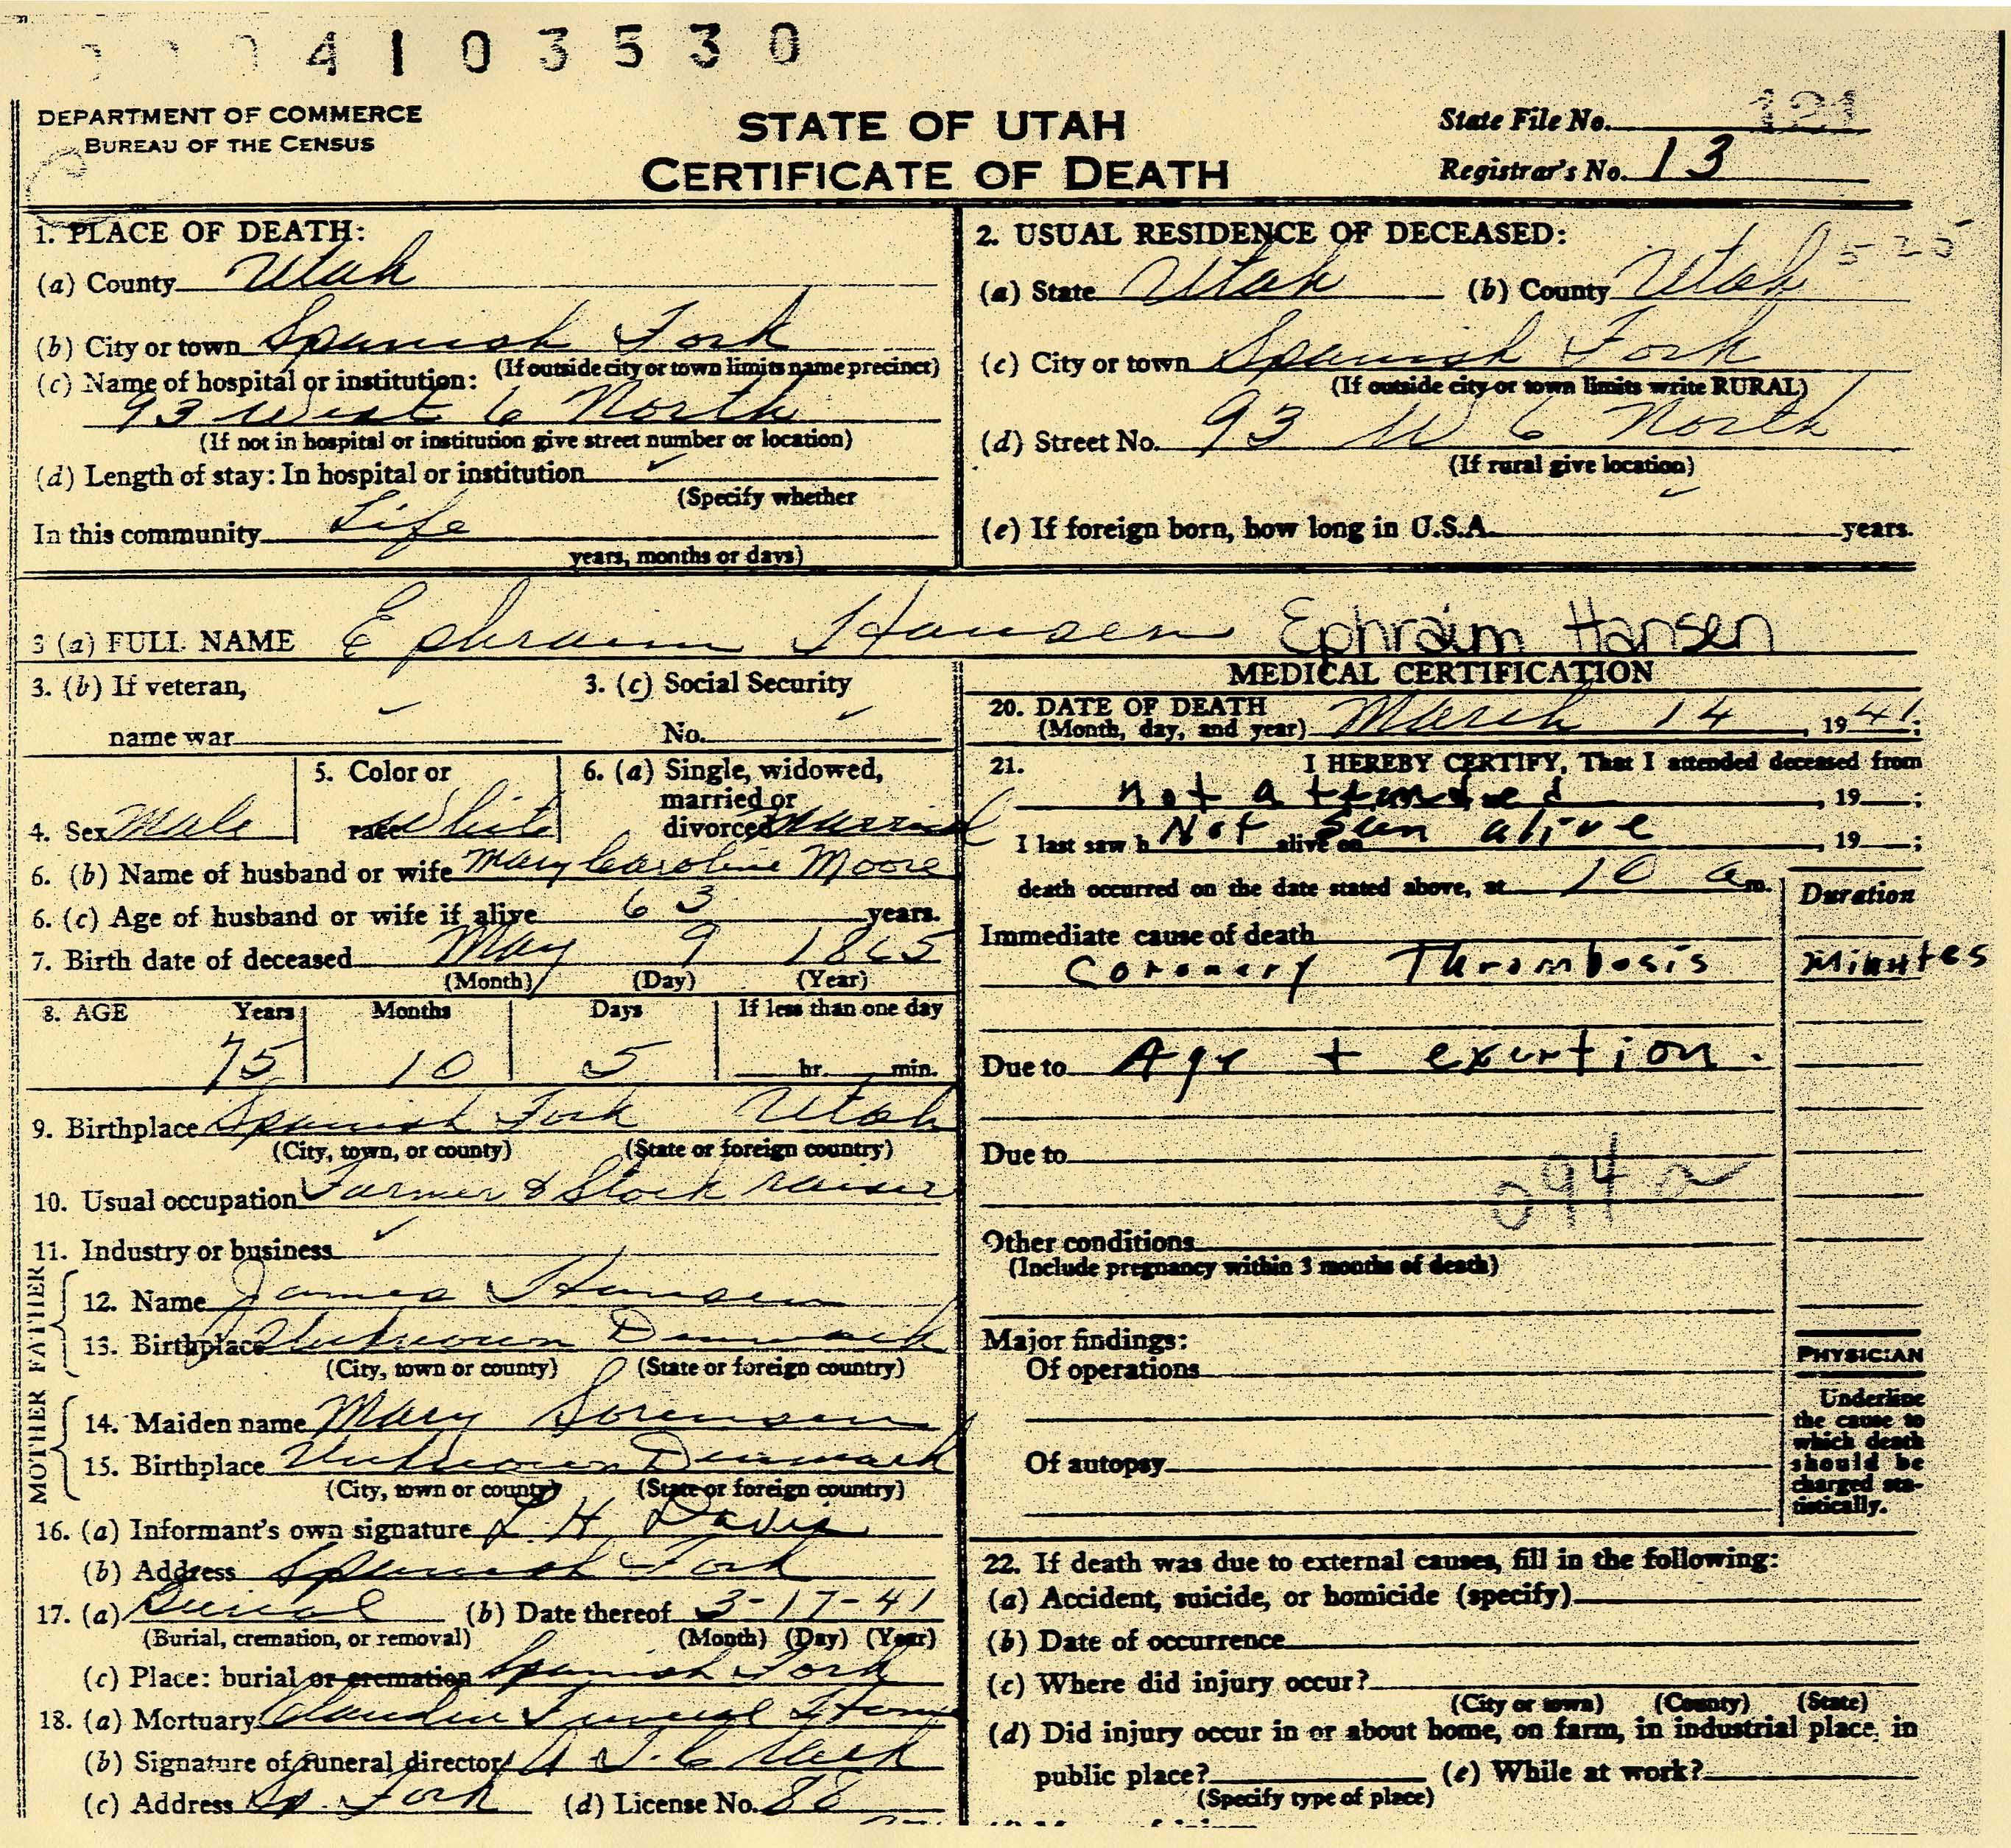 4 1 0 3 5 3 0
DEPARTMENT OF COMMERCE
BUREAU OF THE CENSUS
STATE OF UTAH
CERTIFICATE OF DEATH
State File No. 121
Registrar's No. 13
1. PLACE OF DEATH:
(a) County Utah
(b) City or town Spanish Fork
(If outside city or town limits name precinct)
(c) Name of hospital or institution:
93 West 6 North
(If not in hospital or institution give street number or location)
(d) Length of stay: In hospital or institution
(Specify whether
In this community Life
years, months or days)
2. USUAL RESIDENCE OF DECEASED: 525
(a) State Utah (b) County Utah
(c) City or town Spanish Fork
(If outside city or town limits write RURAL)
(d) Street No. 93 W 6 North
(If rural give location)
(e) If foreign born, how long in U.S.A. years.
3 (a) FULL NAME Ephraim Hansen Ephraim Hansen
3. (b) If veteran,
name war
3. (c) Social Security
No.
4. Sex Male
5. Color or
race White
6. (a) Single, widowed,
married or
divorced Married
6. (b) Name of husband or wife Mary Caroline Moore
6. (c) Age of husband or wife if alive 63 years.
7. Birth date of deceased May 9 1865
(Month) (Day) (Year)
8. AGE Years Months Days If less than one day
75 10 5 hr. min.
9. Birthplace Spanish Fork Utah
(City, town, or county) (State or foreign country)
10. Usual occupation Farmer & Stock raiser
11. Industry or business
FATHER
12. Name James Hansen
13. Birthplace Unknown Denmark
(City, town or county) (State or foreign country)
MOTHER
14. Maiden name Mary Sorensen
15. Birthplace Unknown Denmark
(City, town or county) (State or foreign country)
16. (a) Informant's own signature L. H. Davis
(b) Address Spanish Fork
17. (a) Burial (b) Date thereof 3-17-41
(Burial, cremation, or removal) (Month) (Day) (Year)
(c) Place: burial or cremation Spanish Fork
18. (a) Mortuary Claudin Funeral Home
(b) Signature of funeral director
(c) Address Sp. Fork (d) License No. 88
MEDICAL CERTIFICATION
20. DATE OF DEATH
(Month, day, and year) March 14, 1941;
21. I HEREBY CERTIFY, That I attended deceased from
not attended, 19 ;
I last saw h Not seen alive alive on , 19 ;
death occurred on the date stated above, at 10 a m.
Duration
Immediate cause of death
Coronary Thrombosis Minutes
Due to Age + exertion.
Due to
094 a
Other conditions
(Include pregnancy within 3 months of death)
Major findings:
Of operations
Of autopsy
PHYSICIAN
Underline
the cause to
which death
should be
charged sta-
tistically.
22. If death was due to external causes, fill in the following:
(a) Accident, suicide, or homicide (specify)
(b) Date of occurrence
(c) Where did injury occur?
(City or town) (County) (State)
(d) Did injury occur in or about home, on farm, in industrial place, in
public place? (e) While at work?
(Specify type of place)